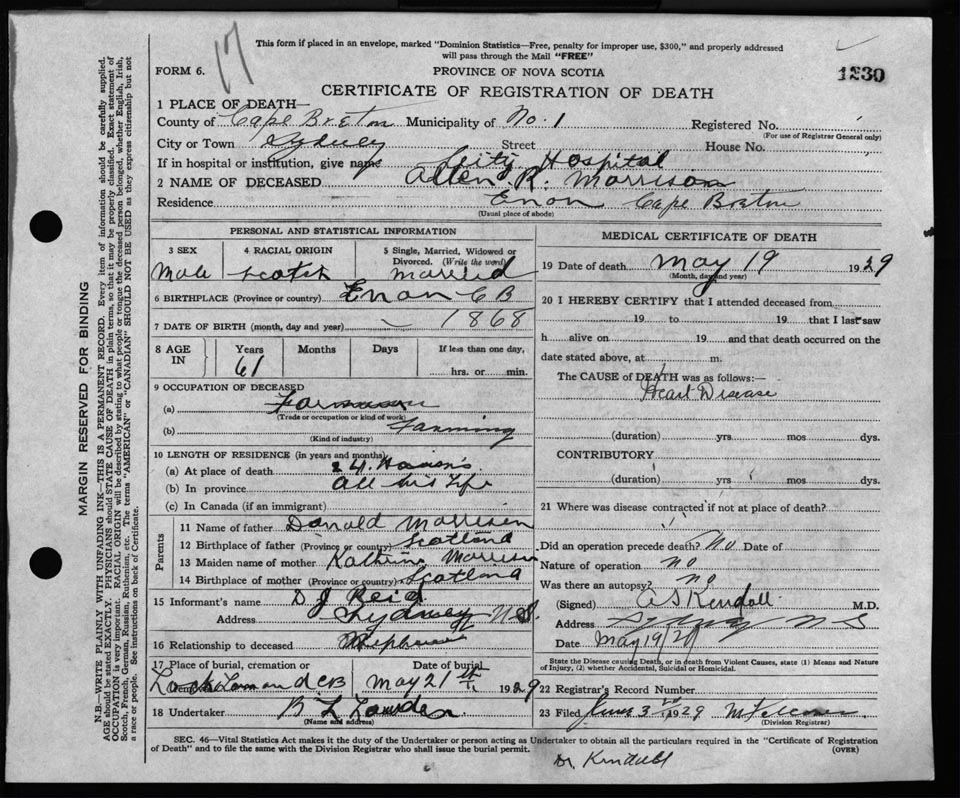 17
This form if placed in an envelope, marked "Dominion Statistics—Free, penalty for improper use, $300," and properly addressed
will pass through the Mail "FREE"
FORM 6.
PROVINCE OF NOVA SCOTIA
1230
CERTIFICATE OF REGISTRATION OF DEATH
1 PLACE OF DEATH—
County of Cape Breton Municipality of No. 1 Registered No.
(For use of Registrar General only)
City or Town Sydney Street House No.
If in hospital or institution, give name City Hospital
2 NAME OF DECEASED Allen R. Morrison
Residence Enon Cape Breton
(Usual place of abode)
PERSONAL AND STATISTICAL INFORMATION
3 SEX
Male
4 RACIAL ORIGIN
Scotch
5 Single, Married, Widowed or
Divorced. (Write the word)
Married
6 BIRTHPLACE (Province or country) Enon C B
7 DATE OF BIRTH (month, day and year) 1868
8 AGE
IN
Years
61
Months
Days
If less than one day,
hrs. or min.
9 OCCUPATION OF DECEASED
(a)
(Trade or occupation or kind of work)
(b) Farming
(Kind of industry)
10 LENGTH OF RESIDENCE (in years and months)
(a) At place of death
(b) In province All his Life
(c) In Canada (if an immigrant)
Parents
11 Name of father Donald Morrison
12 Birthplace of father (Province or country) Scotland
13 Maiden name of mother Morrison
14 Birthplace of mother (Province or country) Scotland
15 Informant's name D J Reid
Address Sydney N.S.
16 Relationship to deceased
17 Place of burial, cremation or
Loch Lomond CB
Date of burial
May 21 1929
18 Undertaker
(Name and address)
MEDICAL CERTIFICATE OF DEATH
19 Date of death May 19 1929
(Month, day and year)
20 I HEREBY CERTIFY that I attended deceased from
19 to 19 that I last saw
h alive on 19 and that death occurred on the
date stated above, at m.
The CAUSE of DEATH was as follows:—
Heart Disease
(duration) yrs. mos dys.
CONTRIBUTORY
(duration) yrs mos dys.
21 Where was disease contracted if not at place of death?
Did an operation precede death? No Date of
Nature of operation no
Was there an autopsy? no
(Signed) A S Kendall M.D.
Address Sydney N S
Date May 19/29
State the Disease causing Death, or in death from Violent Causes, state (1) Means and Nature
of Injury, (2) whether Accidental, Suicidal or Homicidal.
22 Registrar's Record Number
23 Filed June 3rd 1929
(Division Registrar)
SEC. 46—Vital Statistics Act makes it the duty of the Undertaker or person acting as Undertaker to obtain all the particulars required in the "Certificate of Registration
of Death" and to file the same with the Division Registrar who shall issue the burial permit.
(OVER)
Dr Kendall
MARGIN RESERVED FOR BINDING
N.B.—WRITE PLAINLY WITH UNFADING INK—THIS IS A PERMANENT RECORD. Every item of information should be carefully supplied.
AGE should be stated EXACTLY. PHYSICIANS should STATE CAUSE OF DEATH in plain terms, so that it may be properly classified. Exact statement of
OCCUPATION is very important. RACIAL ORIGIN will be described by stating to what people or tongue the deceased person belonged, whether English, Irish,
Scotch, French, German, Russian, Ruthenian, etc. The terms "AMERICAN" or "CANADIAN" SHOULD NOT BE USED as they express citizenship but not
a race or people. See instructions on back of Certificate.